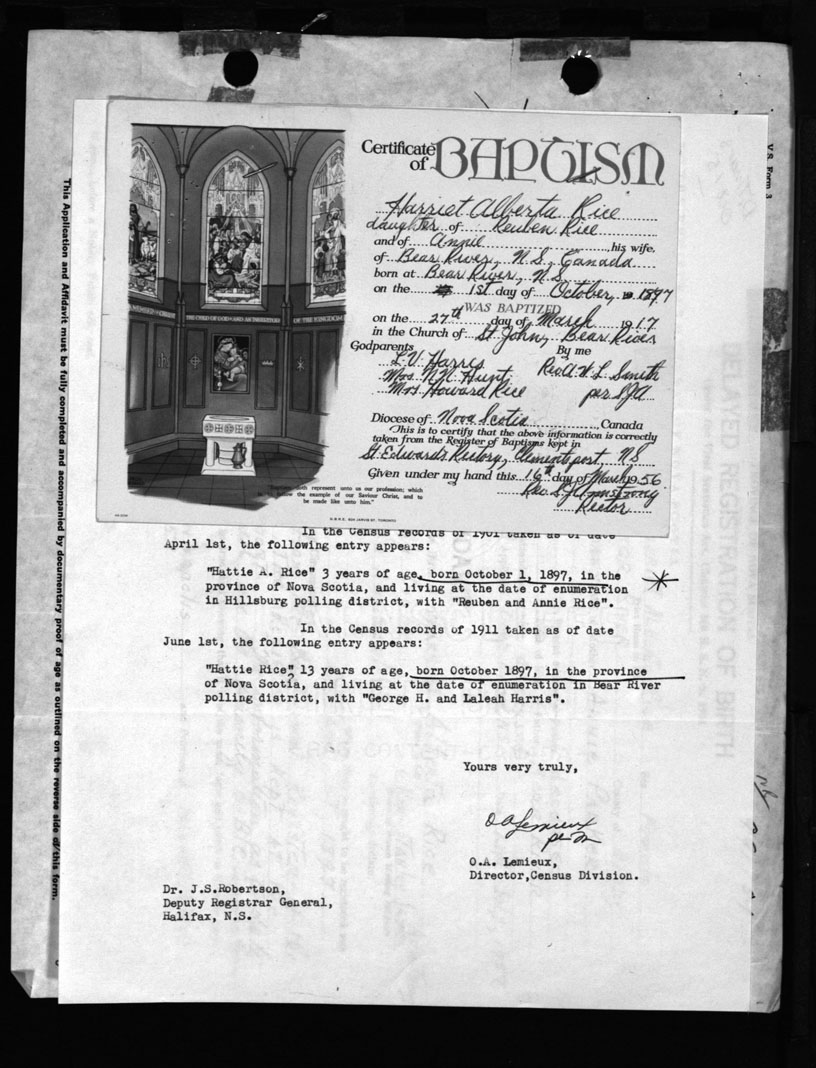 V.S. Form 3
This Application and Affidavit must be fully completed and accompanied by documentary proof of age as outlined on the reverse side of this form.
Certificate of BAPTISM
Harriet Alberta Rice
daughter of Reuben Rice
and of Annie, his wife,
of Bear River, N.S., Canada
born at Bear River, N.S.
on the 1st day of October, 1897
WAS BAPTIZED
on the 27th day of March 1917
in the Church of St John, Bear River
Godparents By me
L.V. Harris Rev A.W.L. Smith
Mrs N.N. Hunt
Mrs Howard Rice per
Diocese of Nova Scotia, Canada
This is to certify that the above information is correctly
taken from the Register of Baptisms kept in
St. Edward's Rectory, Clementsport, NS
Given under my hand this 16th day of March 1956
Rector
OF THE KINGDOM
represent unto us our profession; which
the example of our Saviour Christ, and to
be made like unto him."
In the Census records of 1901 taken as of date
April 1st, the following entry appears:
"Hattie A. Rice" 3 years of age, born October 1, 1897, in the
province of Nova Scotia, and living at the date of enumeration
in Hillsburg polling district, with "Reuben and Annie Rice".
In the Census records of 1911 taken as of date
June 1st, the following entry appears:
"Hattie Rice", 13 years of age, born October 1897, in the province
of Nova Scotia, and living at the date of enumeration in Bear River
polling district, with "George H. and Laleah Harris".
Yours very truly,
O A Lemieux
per
O.A. Lemieux,
Director,Census Division.
Dr. J.S.Robertson,
Deputy Registrar General,
Halifax, N.S.